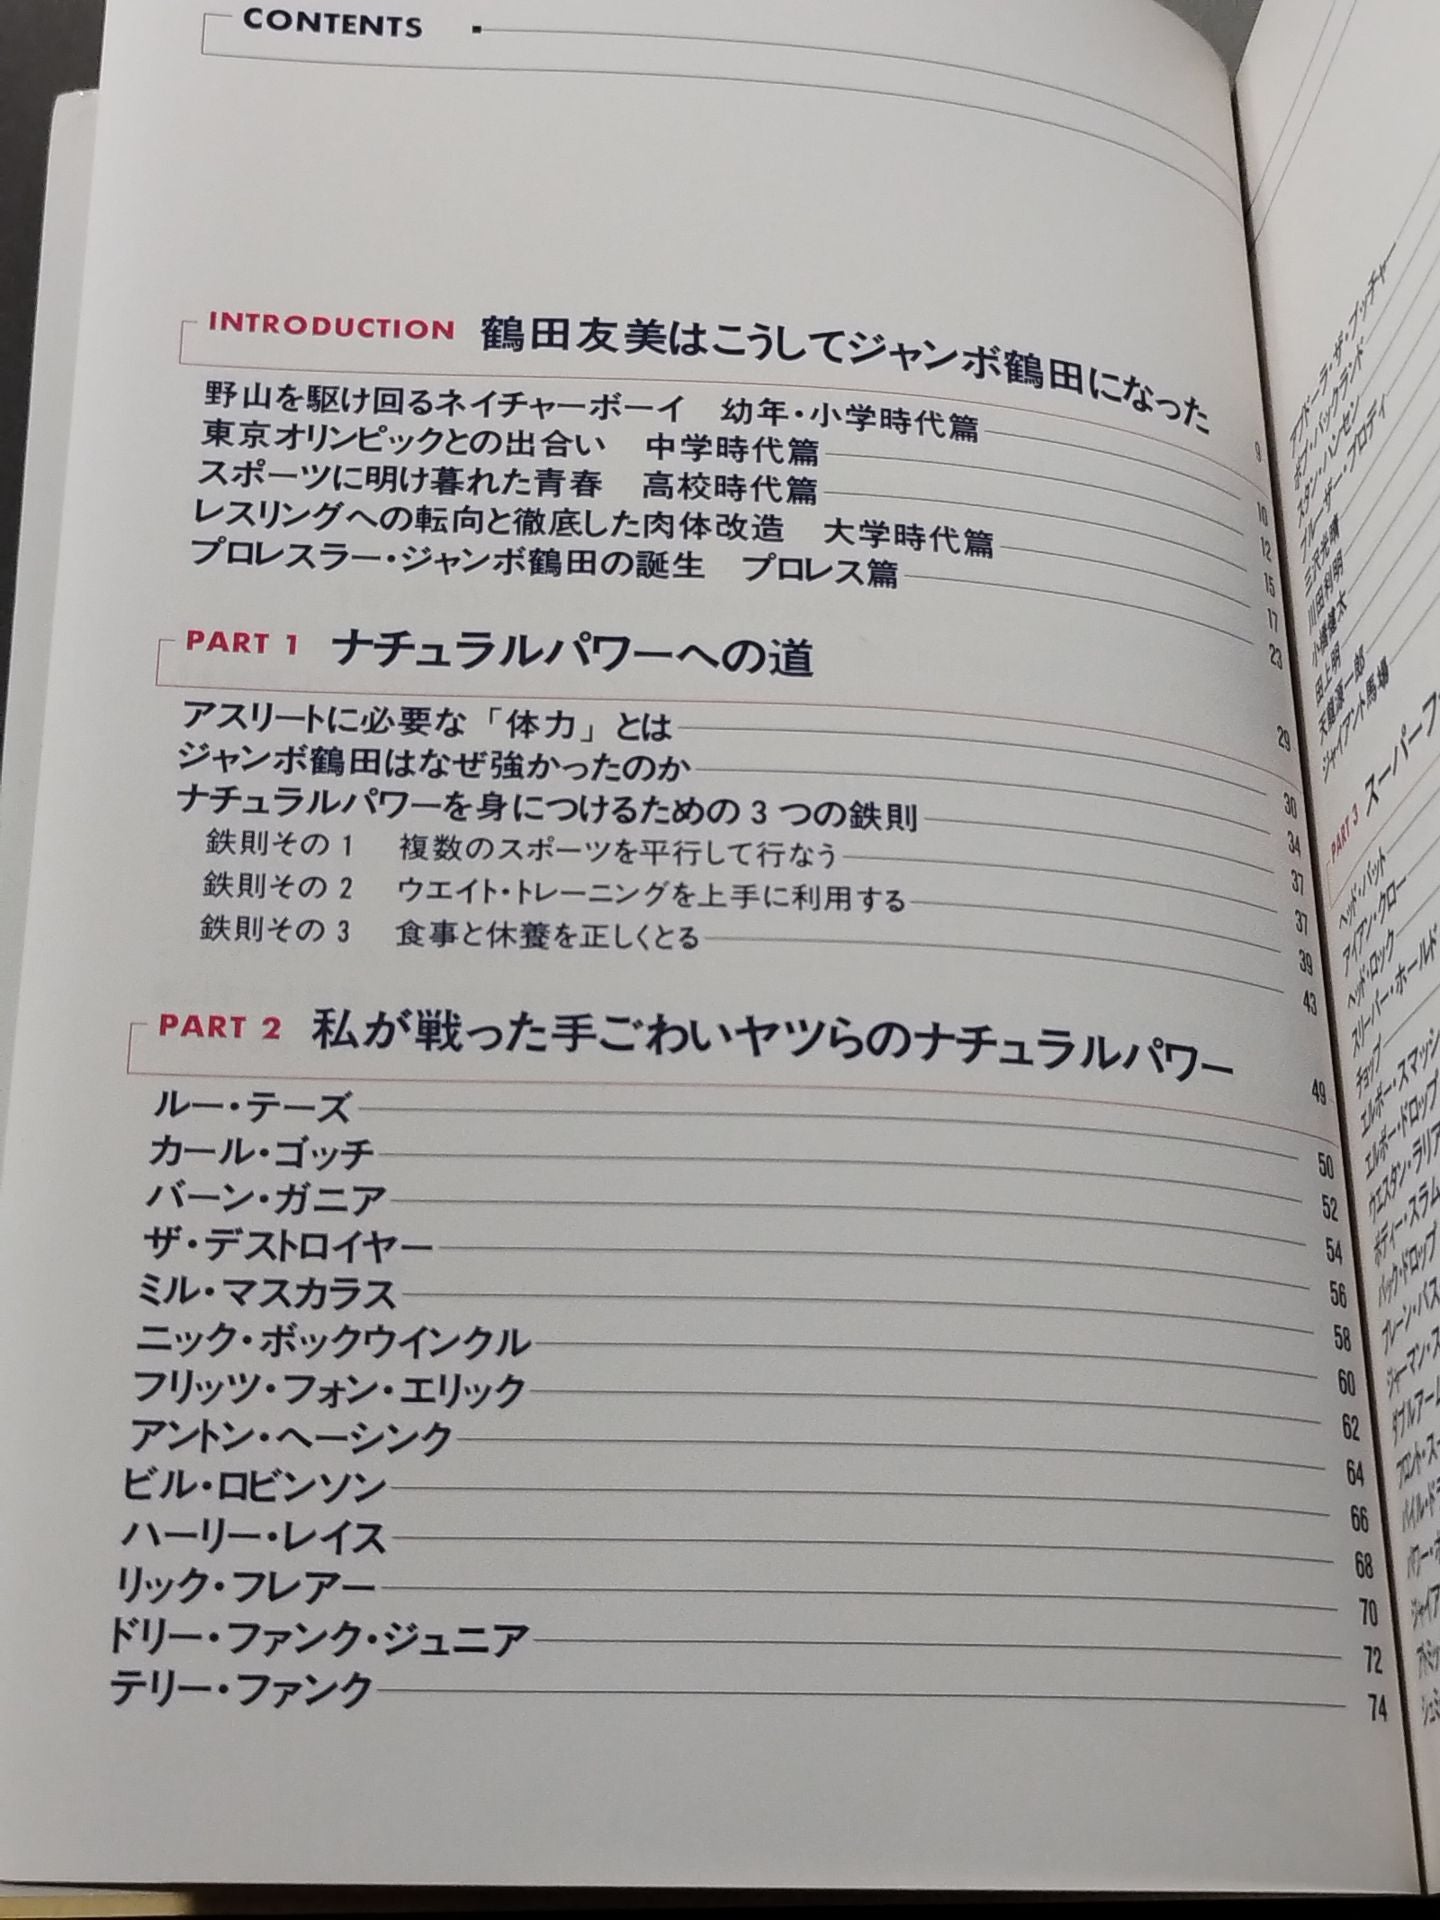 CONTENTS
INTRODUCTION 鶴田友美はこうしてジャンボ鶴田になった 9
野山を駆け回るネイチャーボーイ 幼年・小学時代篇 10
東京オリンピックとの出合い 中学時代篇 12
スポーツに明け暮れた青春 高校時代篇 15
レスリングへの転向と徹底した肉体改造 大学時代篇 17
プロレスラー・ジャンボ鶴田の誕生 プロレス篇 23
PART 1 ナチュラルパワーへの道 29
アスリートに必要な「体力」とは 30
ジャンボ鶴田はなぜ強かったのか 34
ナチュラルパワーを身につけるための3つの鉄則 37
鉄則その1 複数のスポーツを平行して行なう 37
鉄則その2 ウエイト・トレーニングを上手に利用する 39
鉄則その3 食事と休養を正しくとる 43
PART 2 私が戦った手ごわいヤツらのナチュラルパワー 49
ルー・テーズ 50
カール・ゴッチ 52
バーン・ガニア 54
ザ・デストロイヤー 56
ミル・マスカラス 58
ニック・ボックウインクル 60
フリッツ・フォン・エリック 62
アントン・ヘーシンク 64
ビル・ロビンソン 66
ハーリー・レイス 68
リック・フレアー 70
ドリー・ファンク・ジュニア 72
テリー・ファンク 74
アブドーラ・ザ・ブッチャー
ボブ・バックランド
スタン・ハンセン
ブルーザー・ブロディ
三沢光晴
川田利明
小橋健太
田上明
天龍源一郎
ジャイアント馬場
PART 3 スーパーフ
ヘッド・バット
アイアン・クロー
ヘッド・ロック
スリーパー・ホールド
チョップ
エルボー・スマッシ
エルボー・ドロップ
ウエスタン・ラリア
ボディー・スラム
バック・ドロップ
ブレーン・バス
ジャーマン・ス
ダブルアーム
フロント・スー
パイル・ド
パワー・ボ
ジャイア